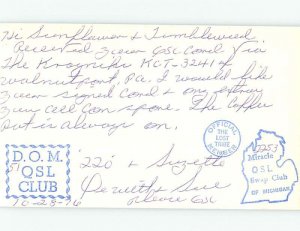 Hi Sunflower & Tumbleweed
Received your QSL Card via
The Kraynik's KCT-3241 of
Walnutport, Pa. I would like
your signed Card & any extras
you can spare. The Coffee
pot is always on.
OFFICIAL
THE LOST
TRIBE
MEMBER
D.O.M.
QSL
CLUB
10-23-76
"220" & Suzette
please QSL
Miracle
QSL
Swap Club
OF MICHIGAN